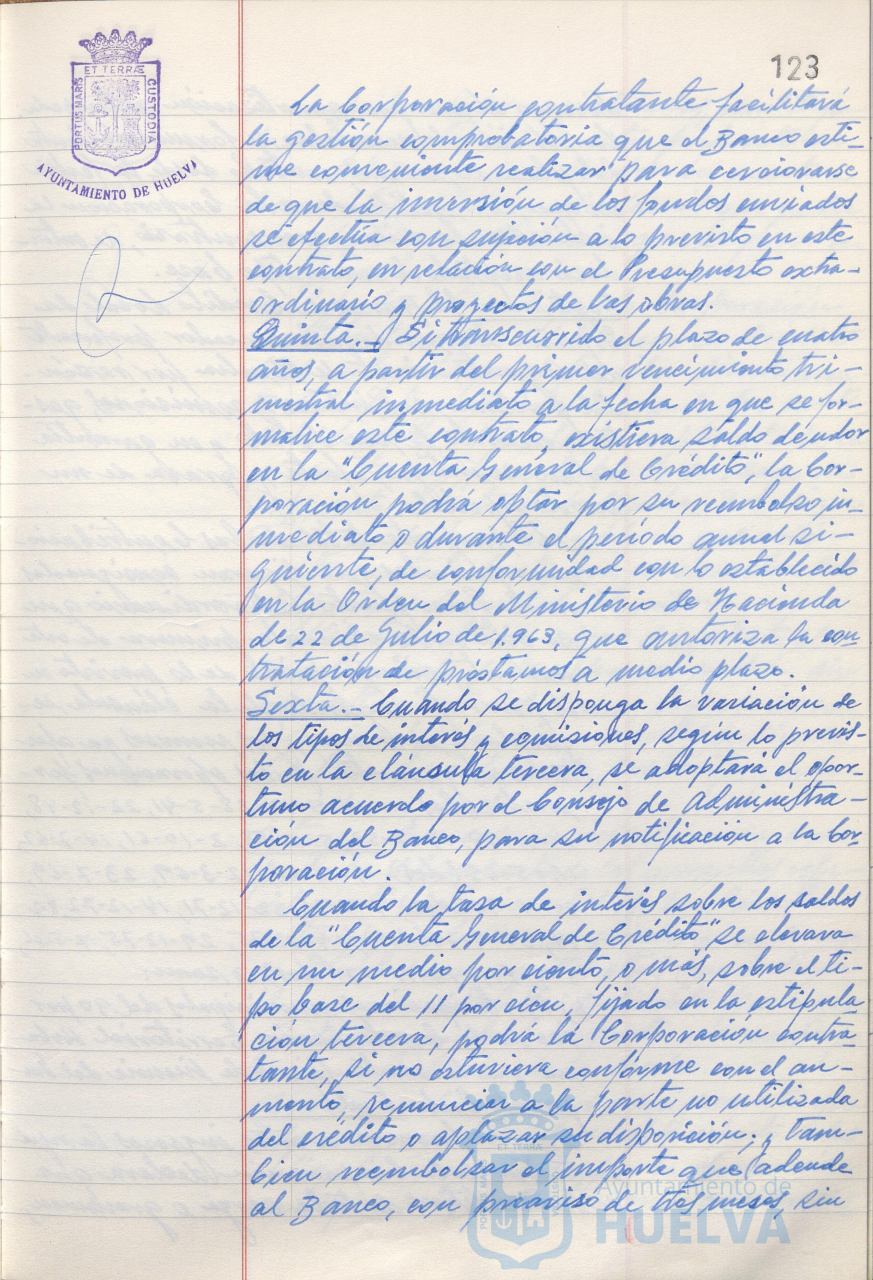 123
ET TERRÆ
PORTUS MARIS
CUSTODIA
AYUNTAMIENTO DE HUELVA
La Corporación contratante facilitará
la gestión comprobatoria que el Banco esti-
me conveniente realizar para cerciorarse
de que la inversión de los fondos enviados
se efectúa con sujeción a lo previsto en este
contrato, en relación con el Presupuesto extra-
ordinario y proyectos de las obras.
Quinta.- Si transcurrido el plazo de cuatro
años, a partir del primer vencimiento tri-
mestral inmediato a la fecha en que se for-
malice este contrato, existiera saldo deudor
en la "Cuenta General de Crédito", la Cor-
poración podrá optar por su reembolso in-
mediato o durante el período anual si-
guiente, de conformidad con lo establecido
en la Orden del Ministerio de Hacienda
de 22 de Julio de 1.963, que autoriza la con-
tratación de préstamos a medio plazo.
Sexta.- Cuando se disponga la variación de
los tipos de interés y comisiones, según lo previs-
to en la cláusula tercera, se adoptará el opor-
tuno acuerdo por el Consejo de Administra-
ción del Banco, para su notificación a la Cor-
poración.
Cuando la tasa de interés sobre los saldos
de la "Cuenta General de Crédito" se elevara
en un medio por ciento, o más, sobre el ti-
po base del 11 por cien, fijado en la estipula
ción tercera, podrá la Corporación contra-
tante, si no estuviera conforme con el au-
mento, renunciar a la parte no utilizada
del crédito o aplazar su disposición; y tam-
bien reembolsar el importe que adeude
al Banco, con preaviso de tres meses, sin
Ayuntamiento de
HUELVA